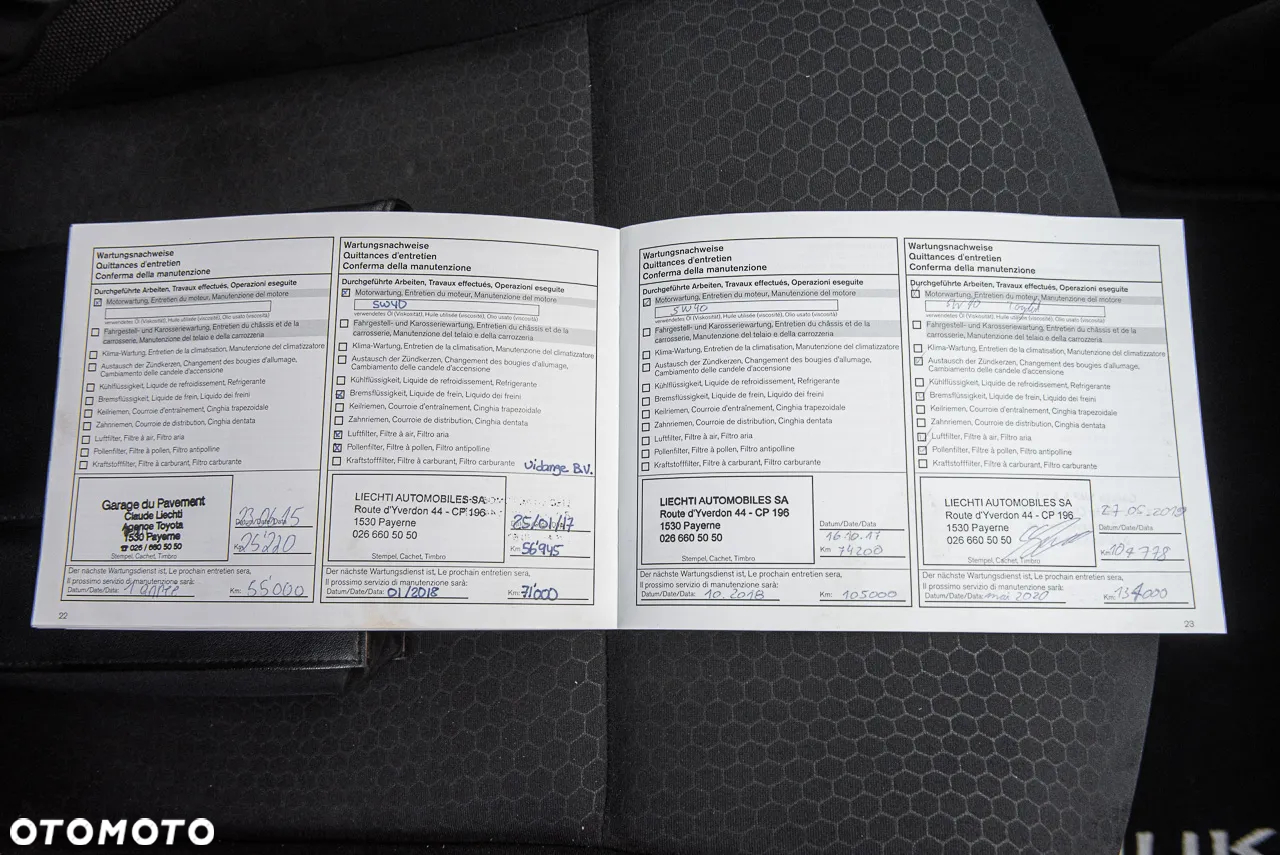 Wartungsnachweise
Quittances d'entretien
Conferma della manutenzione
Durchgeführte Arbeiten, Travaux effectués, Operazioni eseguite
Motorwartung, Entretien du moteur, Manutenzione del motore
verwendetes Öl (Viskosität), Huile utilisée (viscosité), Olio usato (viscosità)
Fahrgestell- und Karosseriewartung, Entretien du châssis et de la
carrosserie, Manutenzione del telaio e della carrozzeria
Klima-Wartung, Entretien de la climatisation, Manutenzione del climatizzatore
Austausch der Zündkerzen, Changement des bougies d'allumage,
Cambiamento delle candele d'accensione
Kühlflüssigkeit, Liquide de refroidissement, Refrigerante
Bremsflüssigkeit, Liquide de frein, Liquido dei freini
Keilriemen, Courroie d'entraînement, Cinghia trapezoidale
Zahnriemen, Courroie de distribution, Cinghia dentata
Luftfilter, Filtre à air, Filtro aria
Pollenfilter, Filtre à pollen, Filtro antipolline
Kraftstofffilter, Filtre à carburant, Filtro carburante
Garage du Pavement
Claude Liechti
Agence Toyota
1530 Payerne
☎ 026 / 660 50 50
Stempel, Cachet, Timbro
23.06.15
Datum/Date/Data
Km 25220
Der nächste Wartungsdienst ist, Le prochain entretien sera,
Il prossimo servizio di manutenzione sarà:
Datum/Date/Data: 1 année Km: 55'000
22
Wartungsnachweise
Quittances d'entretien
Conferma della manutenzione
Durchgeführte Arbeiten, Travaux effectués, Operazioni eseguite
Motorwartung, Entretien du moteur, Manutenzione del motore
5W40
verwendetes Öl (Viskosität), Huile utilisée (viscosité), Olio usato (viscosità)
Fahrgestell- und Karosseriewartung, Entretien du châssis et de la
carrosserie, Manutenzione del telaio e della carrozzeria
Klima-Wartung, Entretien de la climatisation, Manutenzione del climatizzatore
Austausch der Zündkerzen, Changement des bougies d'allumage,
Cambiamento delle candele d'accensione
Kühlflüssigkeit, Liquide de refroidissement, Refrigerante
Bremsflüssigkeit, Liquide de frein, Liquido dei freini
Keilriemen, Courroie d'entraînement, Cinghia trapezoidale
Zahnriemen, Courroie de distribution, Cinghia dentata
Luftfilter, Filtre à air, Filtro aria
Pollenfilter, Filtre à pollen, Filtro antipolline
Kraftstofffilter, Filtre à carburant, Filtro carburante Vidange B.V.
LIECHTI AUTOMOBILES SA
Route d'Yverdon 44 - CP 196
1530 Payerne
026 660 50 50
Stempel, Cachet, Timbro
25/01/17
Km 56'945
Der nächste Wartungsdienst ist, Le prochain entretien sera,
Il prossimo servizio di manutenzione sarà:
Datum/Date/Data: 01/2018 Km: 71'000
Wartungsnachweise
Quittances d'entretien
Conferma della manutenzione
Durchgeführte Arbeiten, Travaux effectués, Operazioni eseguite
Motorwartung, Entretien du moteur, Manutenzione del motore
5W40
verwendetes Öl (Viskosität), Huile utilisée (viscosité), Olio usato (viscosità)
Fahrgestell- und Karosseriewartung, Entretien du châssis et de la
carrosserie, Manutenzione del telaio e della carrozzeria
Klima-Wartung, Entretien de la climatisation, Manutenzione del climatizzatore
Austausch der Zündkerzen, Changement des bougies d'allumage,
Cambiamento delle candele d'accensione
Kühlflüssigkeit, Liquide de refroidissement, Refrigerante
Bremsflüssigkeit, Liquide de frein, Liquido dei freini
Keilriemen, Courroie d'entraînement, Cinghia trapezoidale
Zahnriemen, Courroie de distribution, Cinghia dentata
Luftfilter, Filtre à air, Filtro aria
Pollenfilter, Filtre à pollen, Filtro antipolline
Kraftstofffilter, Filtre à carburant, Filtro carburante
LIECHTI AUTOMOBILES SA
Route d'Yverdon 44 - CP 196
1530 Payerne
026 660 50 50
Stempel, Cachet, Timbro
Datum/Date/Data
16.10.17
Km 74200
Der nächste Wartungsdienst ist, Le prochain entretien sera,
Il prossimo servizio di manutenzione sarà:
Datum/Date/Data: 10.2018 Km: 105000
Wartungsnachweise
Quittances d'entretien
Conferma della manutenzione
Durchgeführte Arbeiten, Travaux effectués, Operazioni eseguite
Motorwartung, Entretien du moteur, Manutenzione del motore
verwendetes Öl (Viskosität), Huile utilisée (viscosité), Olio usato (viscosità)
Fahrgestell- und Karosseriewartung, Entretien du châssis et de la
carrosserie, Manutenzione del telaio e della carrozzeria
Klima-Wartung, Entretien de la climatisation, Manutenzione del climatizzatore
Austausch der Zündkerzen, Changement des bougies d'allumage,
Cambiamento delle candele d'accensione
Kühlflüssigkeit, Liquide de refroidissement, Refrigerante
Bremsflüssigkeit, Liquide de frein, Liquido dei freini
Keilriemen, Courroie d'entraînement, Cinghia trapezoidale
Zahnriemen, Courroie de distribution, Cinghia dentata
Luftfilter, Filtre à air, Filtro aria
Pollenfilter, Filtre à pollen, Filtro antipolline
Kraftstofffilter, Filtre à carburant, Filtro carburante
LIECHTI AUTOMOBILES SA
Route d'Yverdon 44 - CP 196
1530 Payerne
026 660 50 50
Stempel, Cachet, Timbro
27.05.2019
Datum/Date/Data
Km 104778
Der nächste Wartungsdienst ist, Le prochain entretien sera,
Il prossimo servizio di manutenzione sarà:
Datum/Date/Data: mai 2020 Km: 134000
23
OTOMOTO